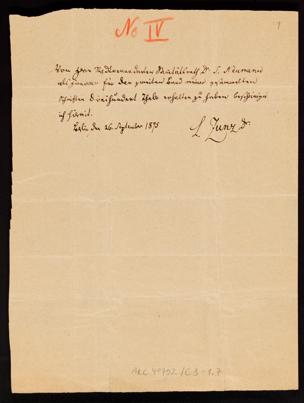 No IV
1
Von Herrn Stadtverordneten Sanitätsrath Dr. S. Neumann
als Honorar für den zweiten Band meiner gesammelten
Schriften dreihundert Thaler erhalten zu haben bescheinige
ich hiermit.
Berlin, den 26. September 1875
L Zunz Dr
ARC 4º792/C3-1.7